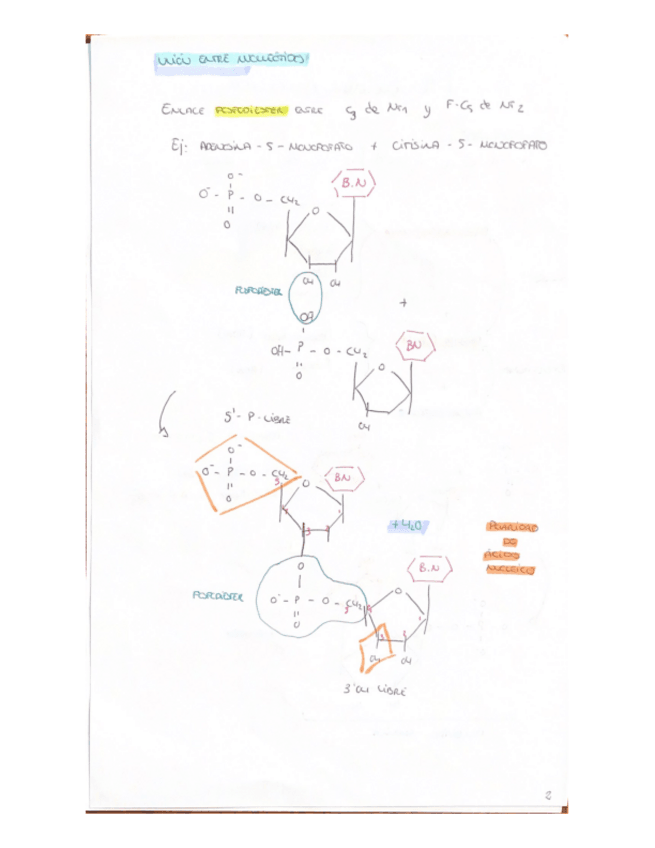 UNIÓN ENTRE NUCLEÓTIDOS
ENLACE FOSFODIESTER ENTRE C3 de Nt1 y F-C5 de Nt2
Ej: ADENOSINA - 5 - MONOFOSFATO + CITISINA - 5 - MONOFOSFATO
O-
O- - P - O - CH2
O
B.N
O
OH OH
FOSFODIESTER
+
OH
OH - P - O - CH2
O
BN
O
OH
5' - P - LIBRE
O-
O- - P - O - CH2
O
5
O
BN
4
3 2
+ H2O
POLARIDAD
DO
ÁCIDO
NUCLEICO
O
FOSFODIESTER
O- - P - O - CH2
O
5
B.N
O
4
3 2
OH OH
3' OH LIBRE
2